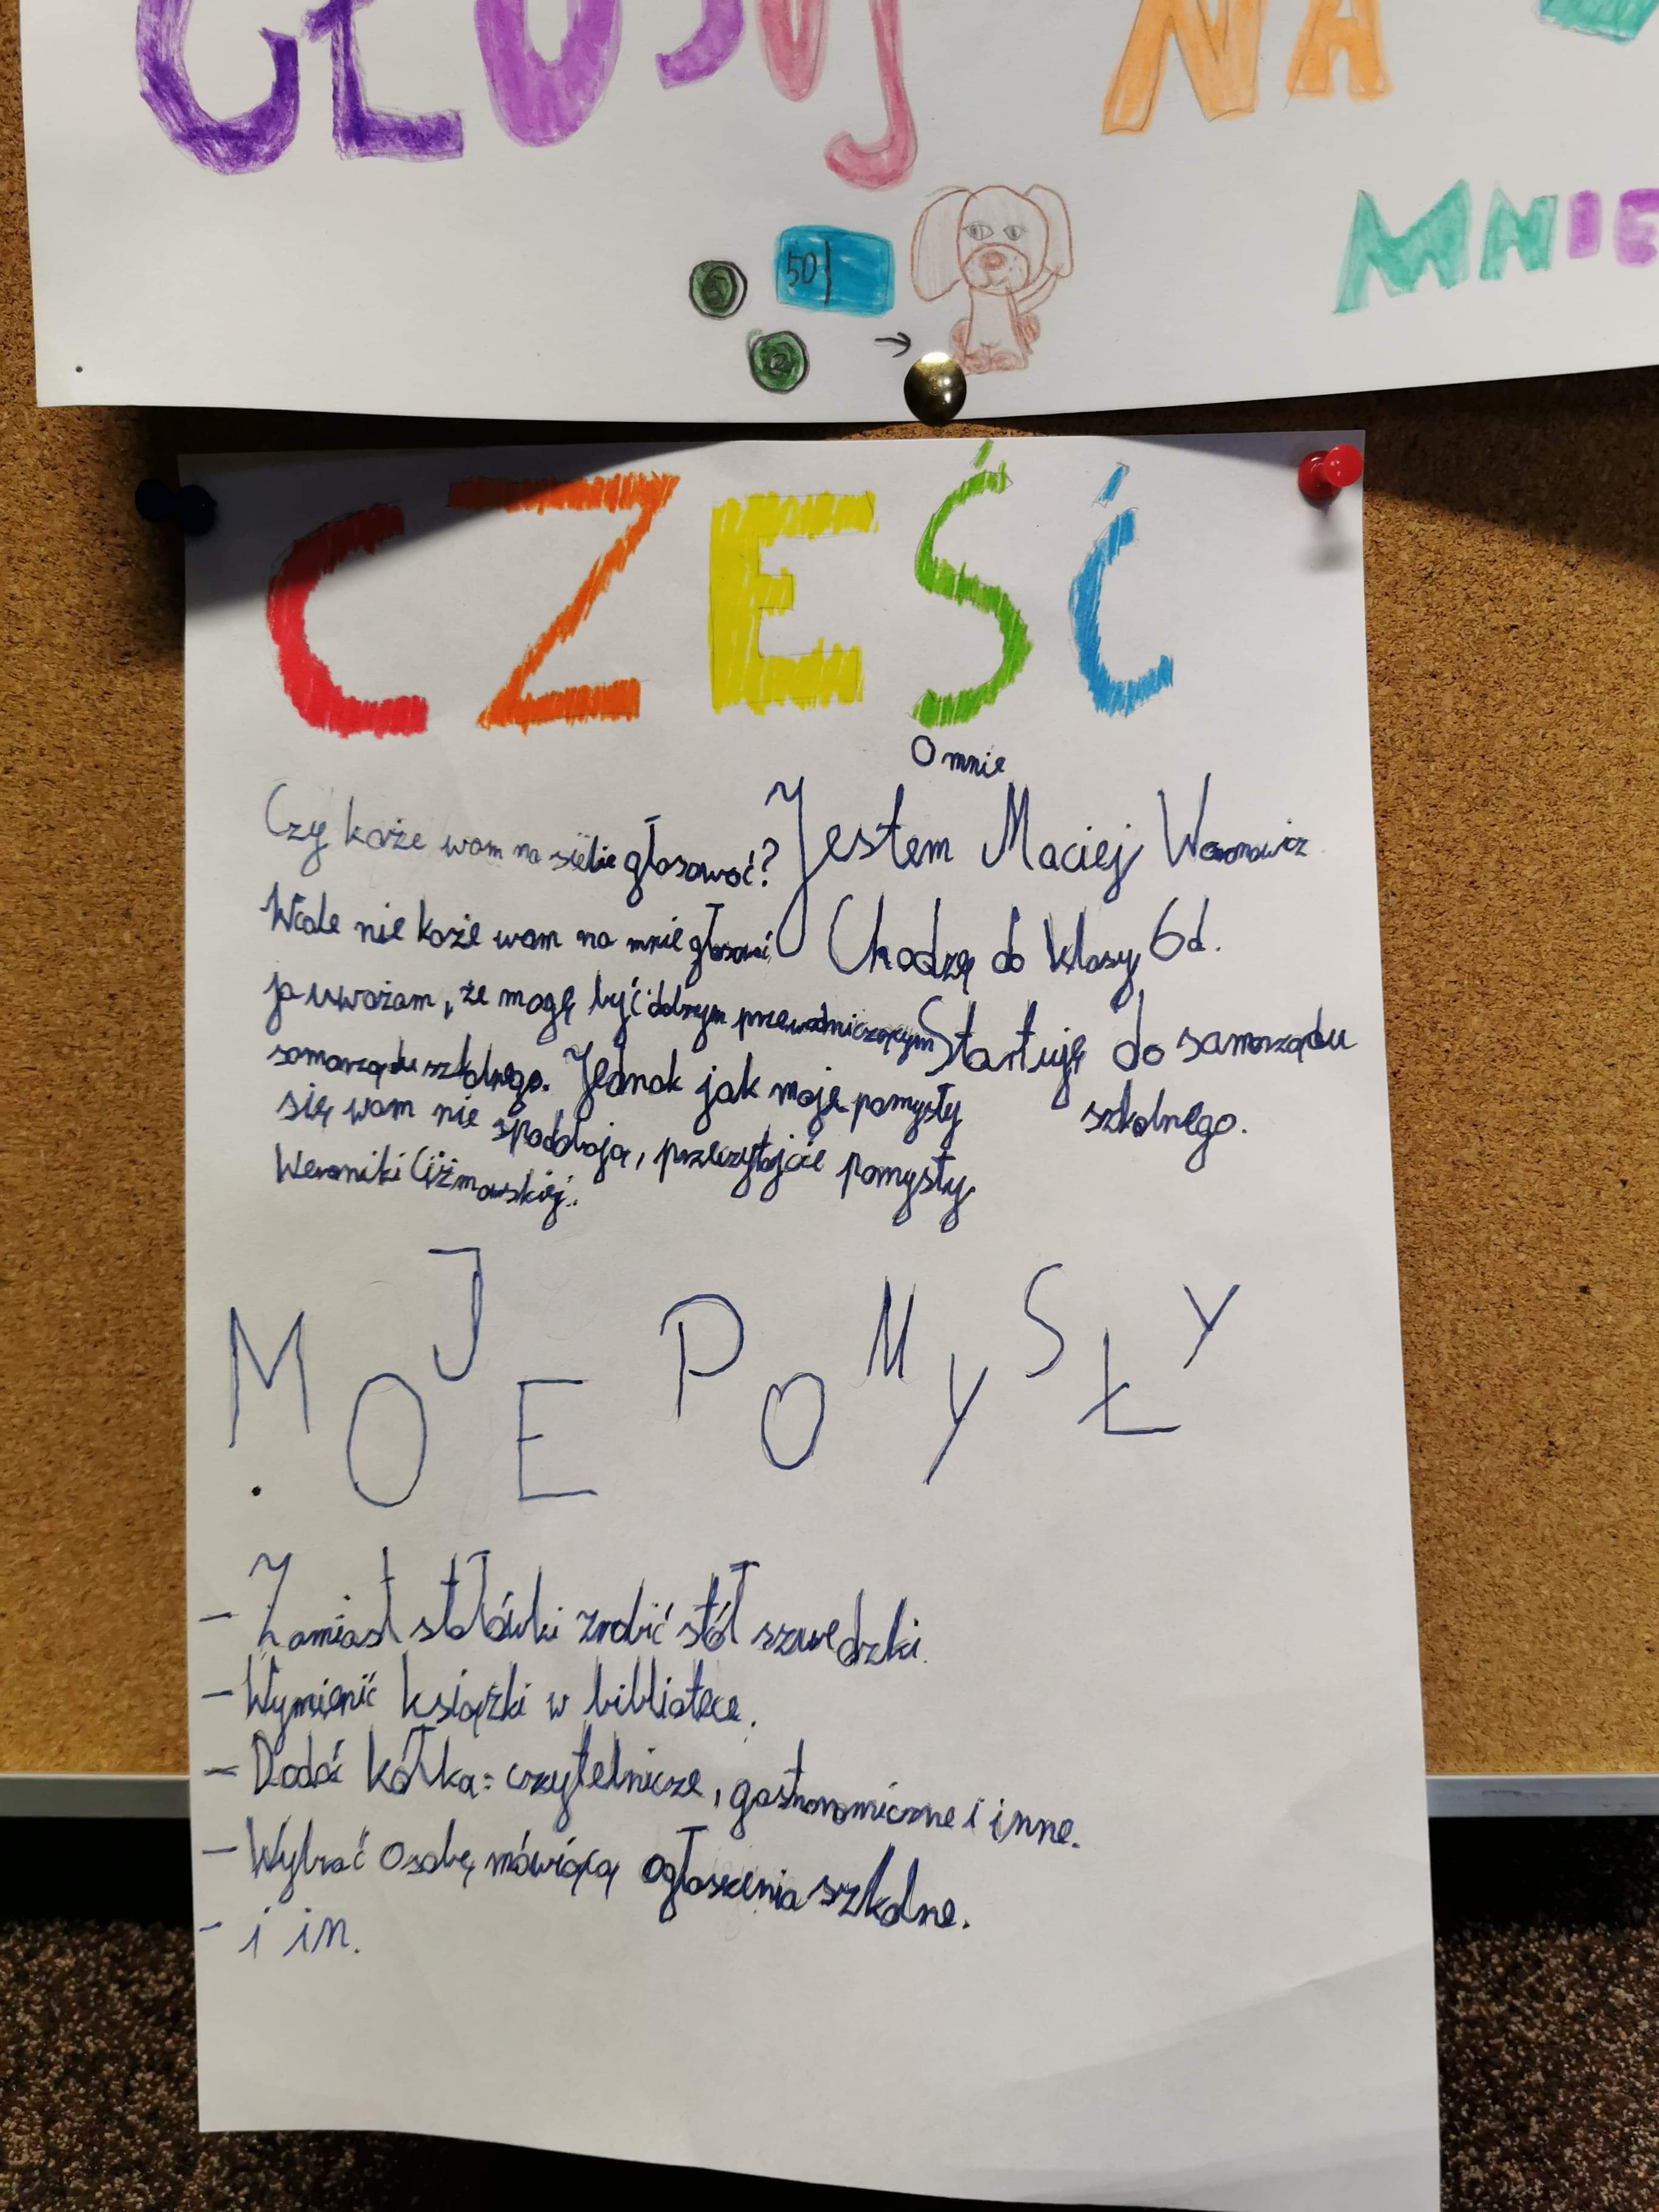 GŁOSUJ NA
MNIE
50
CZEŚĆ
O mnie
Czy każe wam na siebie głosować?
Wcale nie każe wam na mnie głosować,
ja uważam, że mogę być dobrym przewodniczącym
samorządu szkolnego. Jednak jak moje pomysły
się wam nie spodobają, przeczytajcie pomysły
Weroniki
Jestem Maciej Woronowicz
Chodzę do klasy 6d.
Startuję do samorządu
szkolnego.
MOJE POMYSŁY
- Zamiast stołówki zrobić stół szwedzki.
- Wymienić książki w bibliotece.
- Dodać kółka: czytelnicze, gastronomiczne i inne.
- Wybrać osobę mówiącą ogłoszenia szkolne.
- i in.